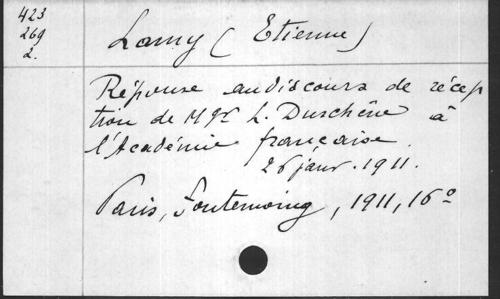 423
269
2.
Lamy (Etienne)
Réponse au discours de récep
tion de Mgr L. Duschêne à
l'Académie française.
26 janv. 1911.
Paris, Fontemoing, 1911, 16º